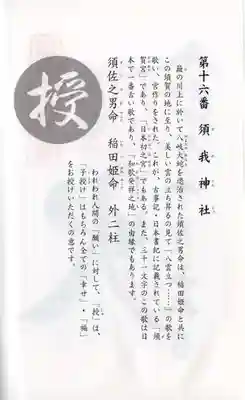 第十六番 須我神社
簸の川上に於いて八岐大蛇を退治された須佐之男命は、稲田姫命と共に
この須賀の地に至り、美しい雲の立ち昇るの見て「八雲立つ……」の歌を
歌い、宮作りをされた。これが、古事記・日本書紀に記載されている「須
賀宮」であり、「日本初之宮」でもある。また、三十一文字のこの歌は日
本で一番古い歌であり、「和歌発祥之地」の由縁でもあります。
須佐之男命 稲田姫命 外二柱
授
われわれ人間の「願い」に対して、「授」は、
「子授け」はもちろん全ての「幸せ」・「福」
をお授けいただくの意です。